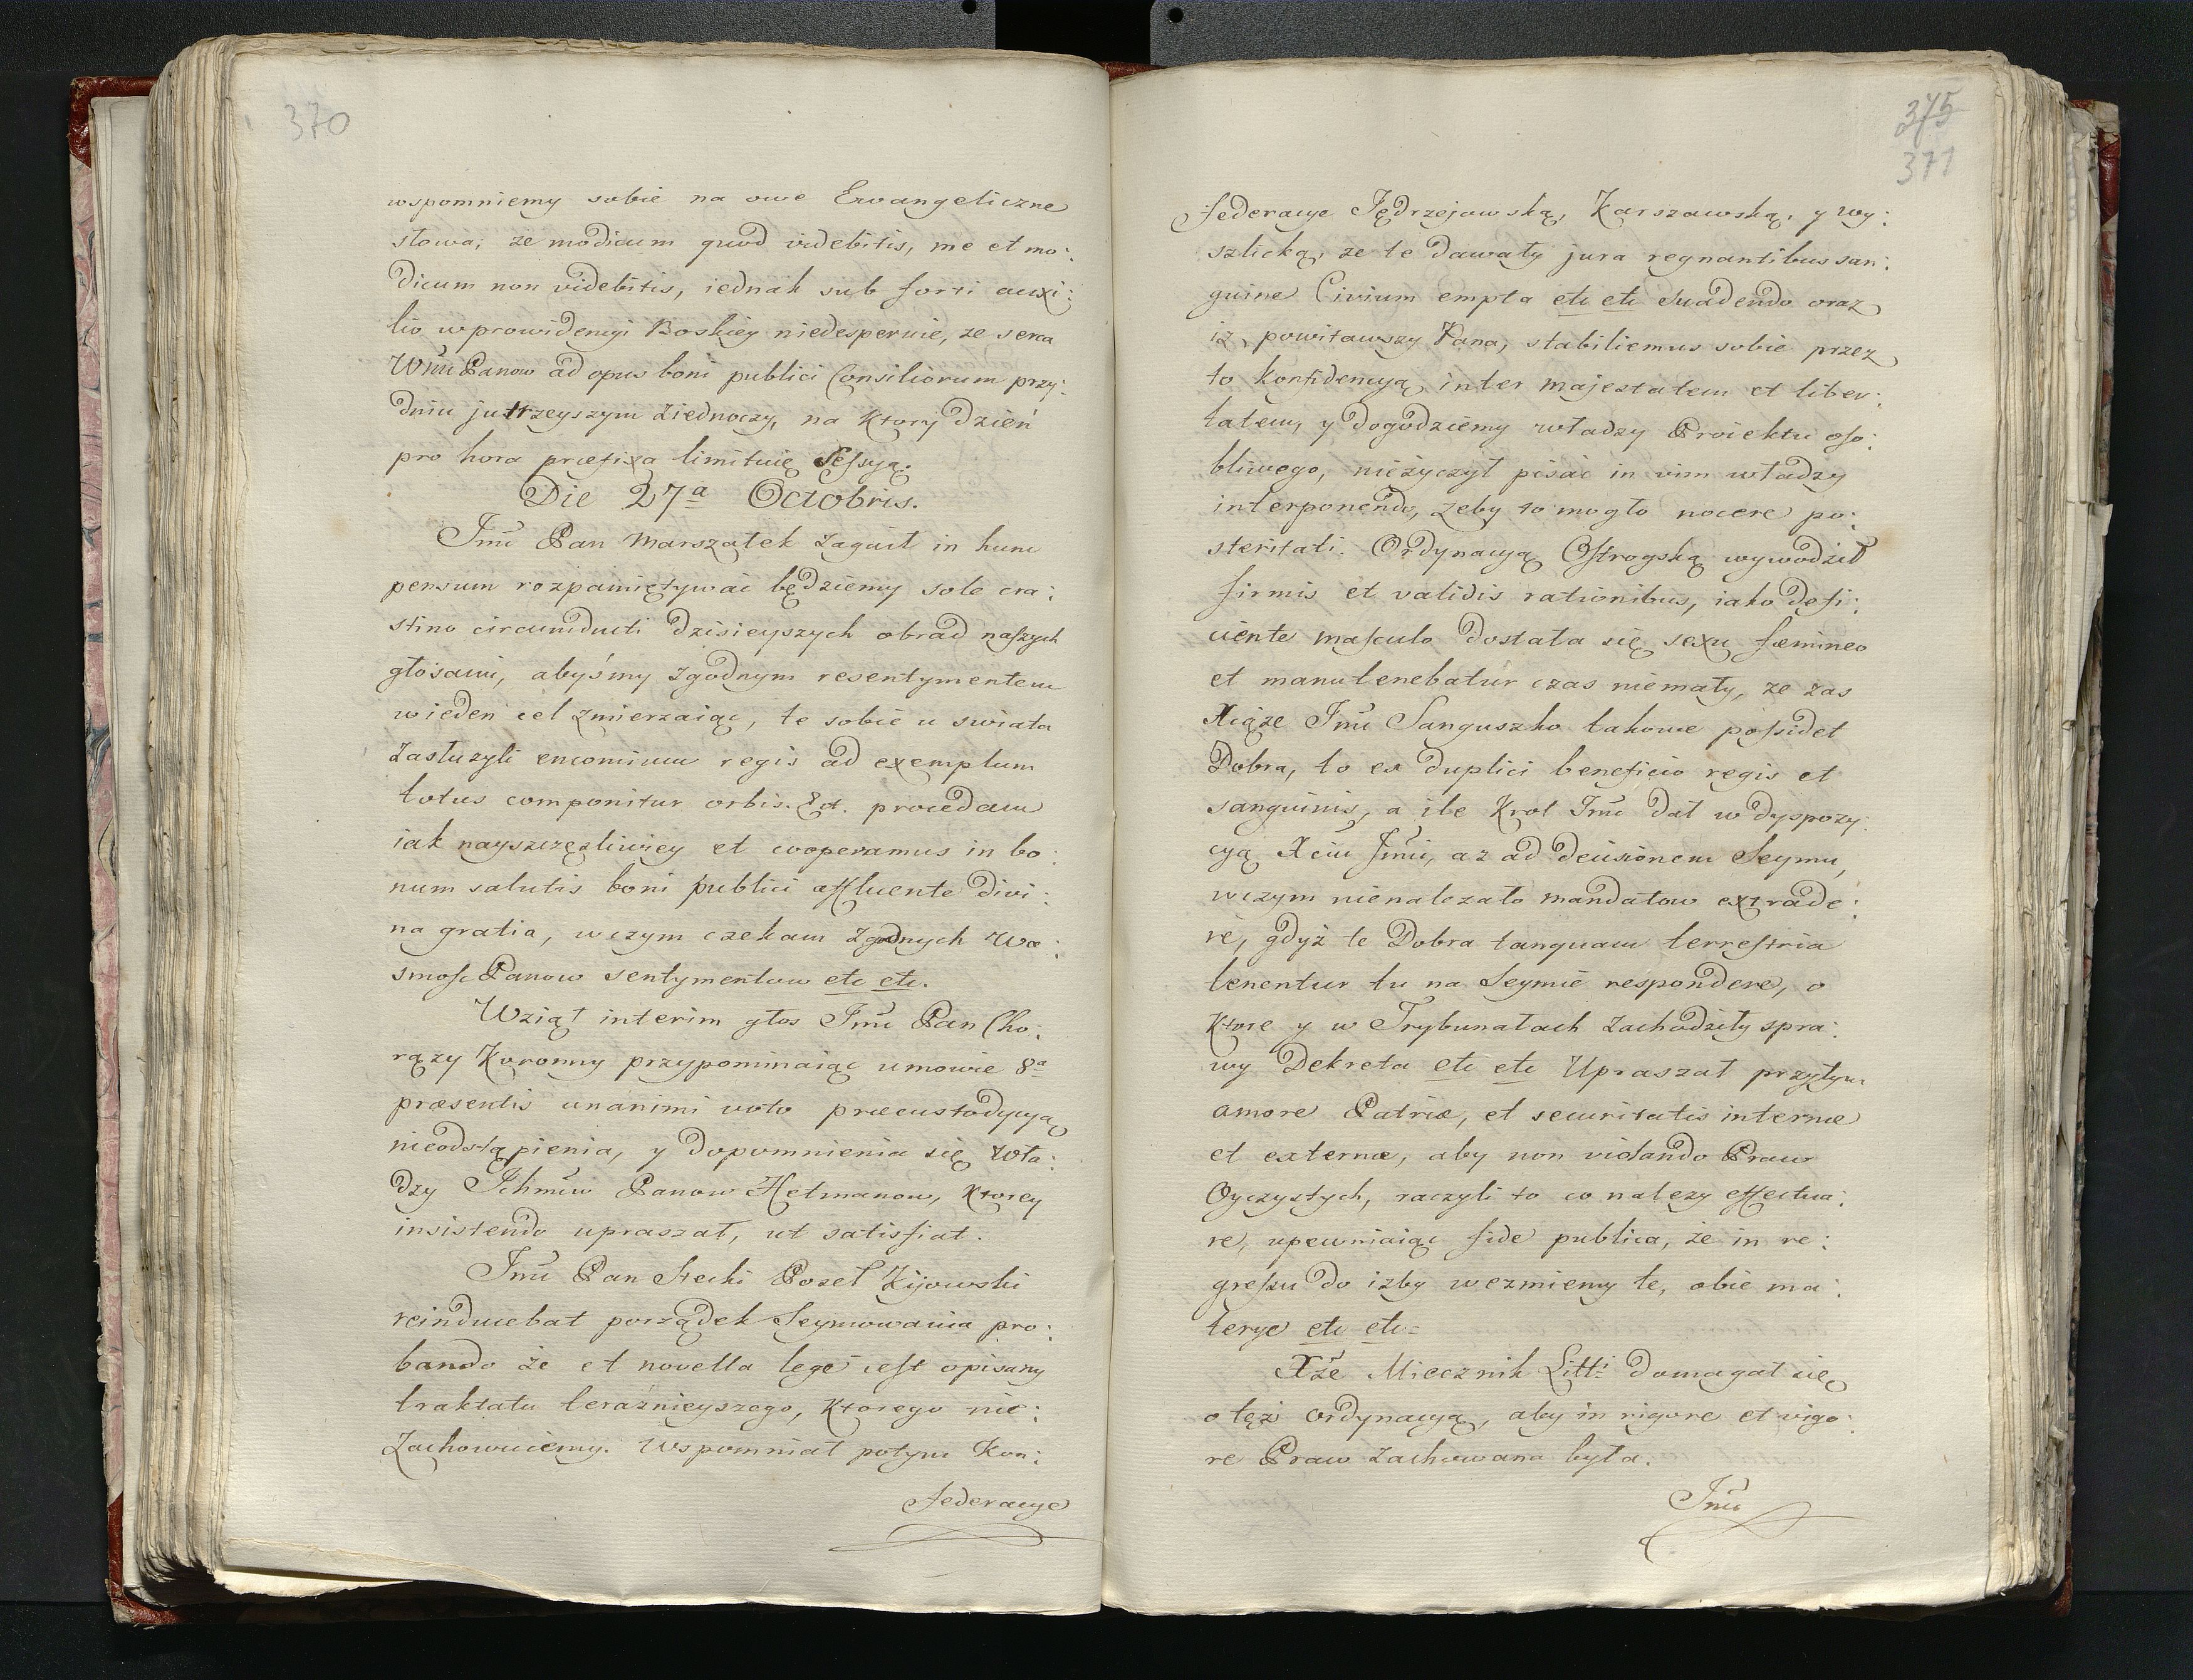 370
wspomniemy sobie na owe Ewangeliczne
słowa, ze modicum quod videbitis, me et mo:
dicum non videbitis, iednak sub forti auxi:
lio w prowidencyi Boskiey niedesperuie, ze serca
WmćPanow ad opus boni publici Consiliorum przy:
dniu jutrzeyszym ziednoczy, na ktory dzień
pro hora præfixa limituię Sessyą.
Die 27ª Octobris.
Jmć Pan Marszałek zagaił in hunc
pensum rozpamiętywać będziemy sole cra:
stino circumducti dzisieyszych obrad naszych
głosami, abyśmy zgodnym resentymentem
w ieden cel zmierzaiąc, te sobie u swiata
zasłuzyli encomium regis ad exemplum
totus componitur orbis. &ct. procedam
iak nayszczęzliwiey et cooperamus in bo:
num salutis boni publici affluente divi:
na gratia, w czym czekam zgodnych Wa:
smość Panow sentymentow etc etc.
Wziął interim głos Jmć Pan Cho:
rązy Koronny przypominaiąc umowie 8ª
præsentis unanimi voto præcustodycyą
nieodstąpienia, y dopomnienia się Wła:
dzy Ichmćiw Panow Hetmanow, ktorey
insistendo upraszał, ut satisfiat.
Jmć Pan Stecki Poseł Kijowski
reinducebat porządek Seymowania pro:
bando że et novella lege iest opisany
traktatu teraźnieyszego, ktorego nie:
zachowuiemy. Wspomniał potym Kon:
federacye
375
371
federacye Jędrzejowską, Warszawską, y Wy:
szlicką, ze te dawały jura regnantibus san:
guine Civium empta etc etc suadendo oraz
iz powitawszy Pana, stabiliemus sobie przez
to konfidencyą inter majestatem et liber:
tatem, y dogodziemy władzy Proiektu oso:
bliwego, nieżyczył pisać in vim władzy
interponendo, zeby to mogło nocere po:
steritati. Ordynacyą Ostrogską wywodził
firmis et validis rationibus, iako defi:
ciente masculo dostała się sexu fæmineo
et manutenebatur czas niemały, ze zas
Xiąze Jmć Sanguszko takowe possidet
Dobra, to ex duplici beneficio regis et
sanguinis, a ile Krol Jmć dał w dyspozy:
cyą Xciu Jmći, az ad decisionem Seymu,
w czym nienalezało mandatow extrade:
re, gdyż te Dobra tanquam terrestria
tenentur tu na Seymie respondere, o
ktore y w Trybunałach zachodziły spra:
wy Dekreta etc etc Upraszał przytym
amore Patriæ, et securitatis internæ
et externæ, aby non violando Praw
Oyczystych, raczyli to co nalezy effectua:
re, upewniaiąc fide publica, że in re:
gressu do izby wezmiemy te, obie ma:
terye etc etc=
Xże Miecznik Litt: domagał się
o tęż ordynacyą, aby in rigore et vigo:
re Praw zachowana była.
Jmć